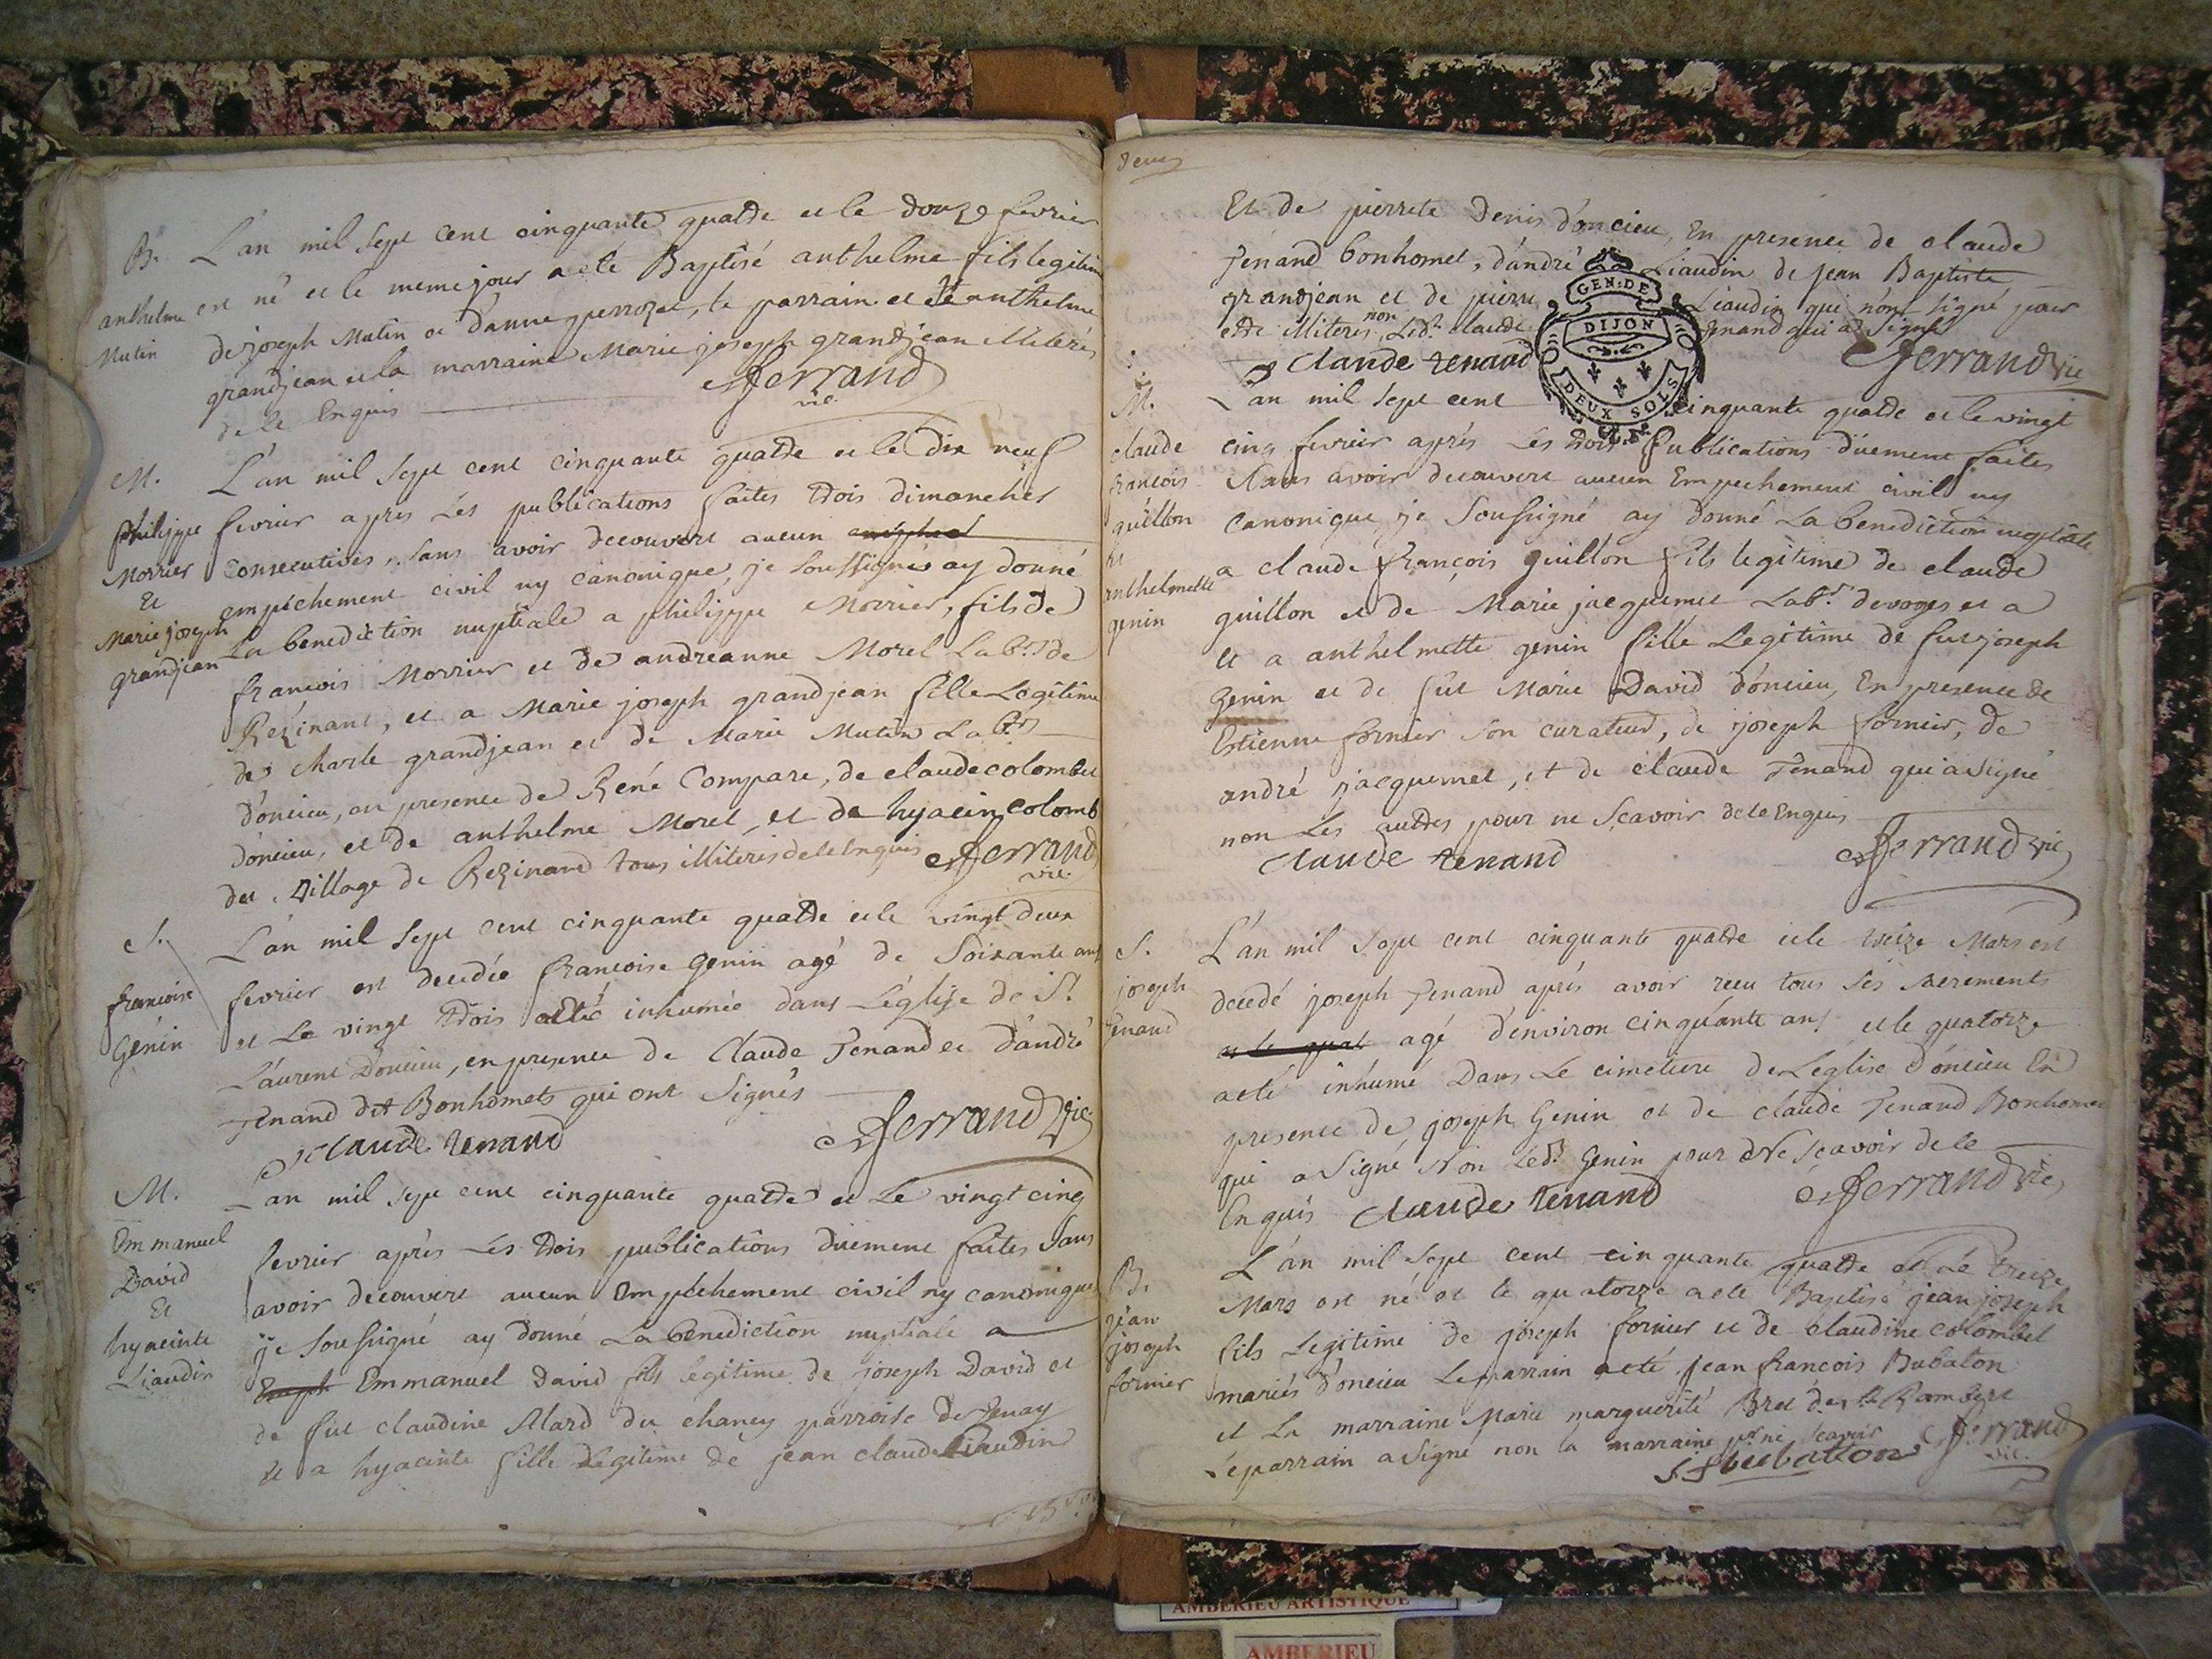 B.
anthelme
Mutin
L'an mil sept cent cinquante quatre et le douze fevrier
est né et le meme jour a eté Baptisé anthelme fils legitim
de joseph Mutin et d'anne perrozet, le parrain a eté anthelme
grandjean et la marraine Marie joseph grandjean illiterés
de le Enquis
ferrand
vic.
M.
philippe
Morrier
Et
Marie joseph
grandjean
L'an mil sept cent cinquante quatre et le dix neuf
fevrier apres Les publications faites trois dimanches
Consecutives, sans avoir decouvert aucun
empechement civil ny canonique, je soussigné ay donné
La benediction nuptiale a philippe Morrier, fils de
francois Morrier et de andreanne Morel Lab.rs de
Rezinant, et a Marie joseph grandjean fille Legitime
de charle grandjean et de Marie Mutin Lab.rs
d'oncieu, en presence de René Compare, de claude colombet
d'oncieu, et de anthelme Morel, et de hyacin colomb
du village de Rezinand tous illiterés de le Enquis ferrand
vic.
S.
francoise
Génin
L'an mil sept cent cinquante quatre et le vingt deux
fevrier est decedée francoise Genin agé de Soixante ans
et Le vingt trois a eté inhumée dans L'église de St
Laurent D'oncieu, en presence de Claude Tenand et d'andré
Tenand dit Bonhomets qui ont Signés
Claude tenand
ferrand vic
M.
Emmanuel
David
Et
hyacinte
Liaudin
L'an mil sept cent cinquante quatre et Le vingt cinq
fevrier aprés Les trois publications duement faites sans
avoir decouvert aucun Empechement civil ny canonique
je soussigné ay donné La benediction nuptiale a
Joseph Emmanuel David fils legitime de joseph David et
de fut claudine Alard du chaney parroise de Tenay
et a hyacinte fille Legitime de jean claude Liaudin
Et de pierrete Denis d'oncieu, En presence de claude
Tenand bonhomet, d'andré Liaudin de jean Baptiste
grandjean et de pierre Liaudin qui n'ont signé pour
estre illiteres, non Led.t claude tenand qui a Signé
claude tenand
ferrand vic
GEN. DE
DIJON
DEUX SOLS
M.
claude
francois
guillon
et
anthelmette
genin
L'an mil sept cent cinquante quatre et le vingt
cinq fevrier aprés Les trois Publications duement faites
sans avoir decouvert aucun Empechement civil ny
Canonique je Soussigné ay donné La benediction nuptiale
a claude françois guillon fils legitime de claude
guillon et de Marie jacquemet Lab.r de et a
et a anthelmette genin fille Legitime de fut joseph
Genin et de fut Marie David d'oncieu, En presence de
Estienne fornier son curateur, de joseph fornier, de
andré jacquemet, et de claude Tenand qui a signé
non Les autres pour ne Sçavoir de le Enquis
claude tenand
ferrand vic
S.
joseph
Tenand
L'an mil sept cent cinquante quatre et le treize Mars est
decedé joseph Tenand aprés avoir receu tous ses sacrements
et le quat agé d'environ cinquante ans et le quatorze
a eté inhumé Dans Le cimetiere de L'église d'oncieu En
presence de joseph Genin et de claude Tenand Bonhomet
qui a Signé Non Led.t Genin pour Ne Sçavoir de le
Enquis claude tenand
ferrand vic
B.
jean
joseph
fornier
L'an mil sept cent cinquante quatre et Le treize
Mars est né et le quatorze a eté Baptisé jean joseph
fils Legitime de joseph fornier et de claudine colombet
mariés d'oncieu Le parrain a eté jean francois Bubaton
et La marraine Marie marguerite Bret de St Rambert
Le parrain a Signé non la marraine p.r ne sçavoir
Bubaton
ferrand
vic.
AMBERIEU ARTISTIQUE
AMBERIEU